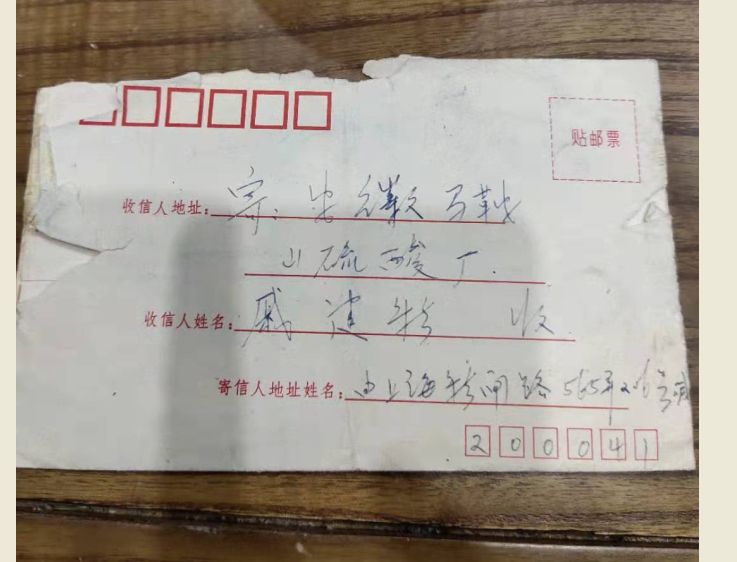 贴邮票
收信人地址: 寄: 安徽马鞍
山硫酸厂.
收信人姓名: 戚建新 收
寄信人地址姓名: 由上海新闸路565弄 号戚
200041